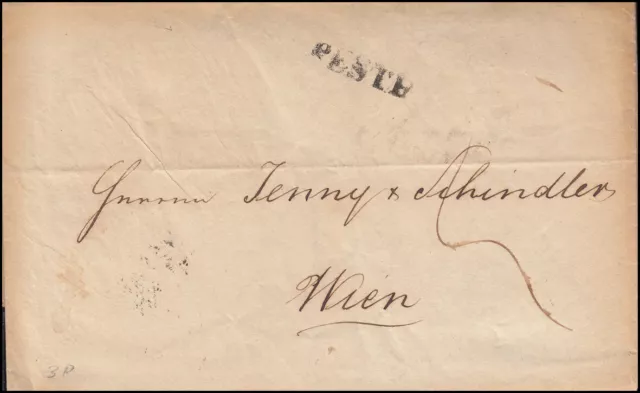 PESTH
Herren Jenny & Schindler
Wien
3 P